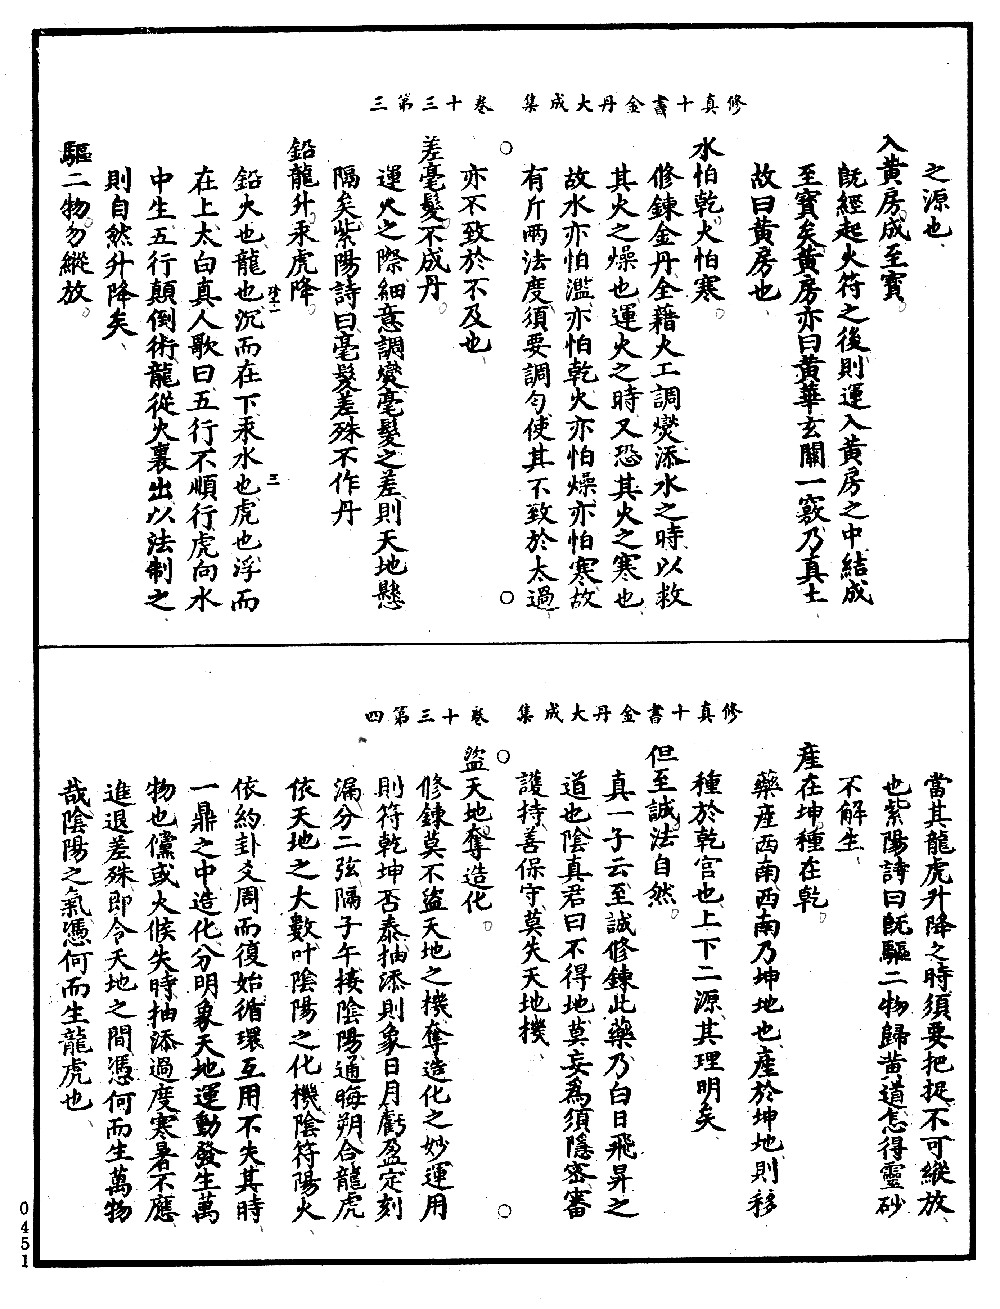 修真十書金丹大成集　卷十三第三
之源也
入黃房成至寶
既經起火符之後則運入黃房之中結成
至寶矣黃房亦曰黃華玄關一竅乃真土
故曰黃房也
水怕乾火怕寒
修鍊金丹全藉火工調燮添水之時以救
其火之燥也運火之時又恐其火之寒也
故水亦怕濫亦怕乾火亦怕燥亦怕寒故
有斤兩法度須要調勻使其不致於太過
亦不致於不及也
差毫髮不成丹
運火之際細意調燮毫髮之差則天地懸
隔矣紫陽詩曰毫髮差殊不作丹
鉛龍升汞虎降
三
鉛火也龍也沉而在下汞水也虎也浮而
在上太白真人歌曰五行不順行虎向水
中生五行顛倒術龍從火裏出以法制之
則自然升降矣
驅二物勿縱放
修真十書金丹大成集　卷十三第四
當其龍虎升降之時須要把捉不可縱放
也紫陽詩曰既驅二物歸黃道怎得靈砂
不解生
產在坤種在乾
藥產西南西南乃坤地也產於坤地則移
種於乾宮也上下二源其理明矣
但至誠法自然
真一子云至誠修鍊此藥乃白日飛昇之
道也陰真君曰不得地莫妄為須隱密審
護持善保守莫失天地機
盜天地奪造化
修鍊莫不盜天地之機奪造化之妙運用
則符乾坤否泰抽添則象日月虧盈定刻
漏分二弦隔子午接陰陽通晦朔合龍虎
依天地之大數叶陰陽之化機陰符陽火
依約卦爻周而復始循環互用不失其時
一鼎之中造化分明象天地運動發生萬
物也儻或火候失時抽添過度寒暑不應
進退差殊即令天地之間憑何而生萬物
哉陰陽之氣憑何而生龍虎也
0451